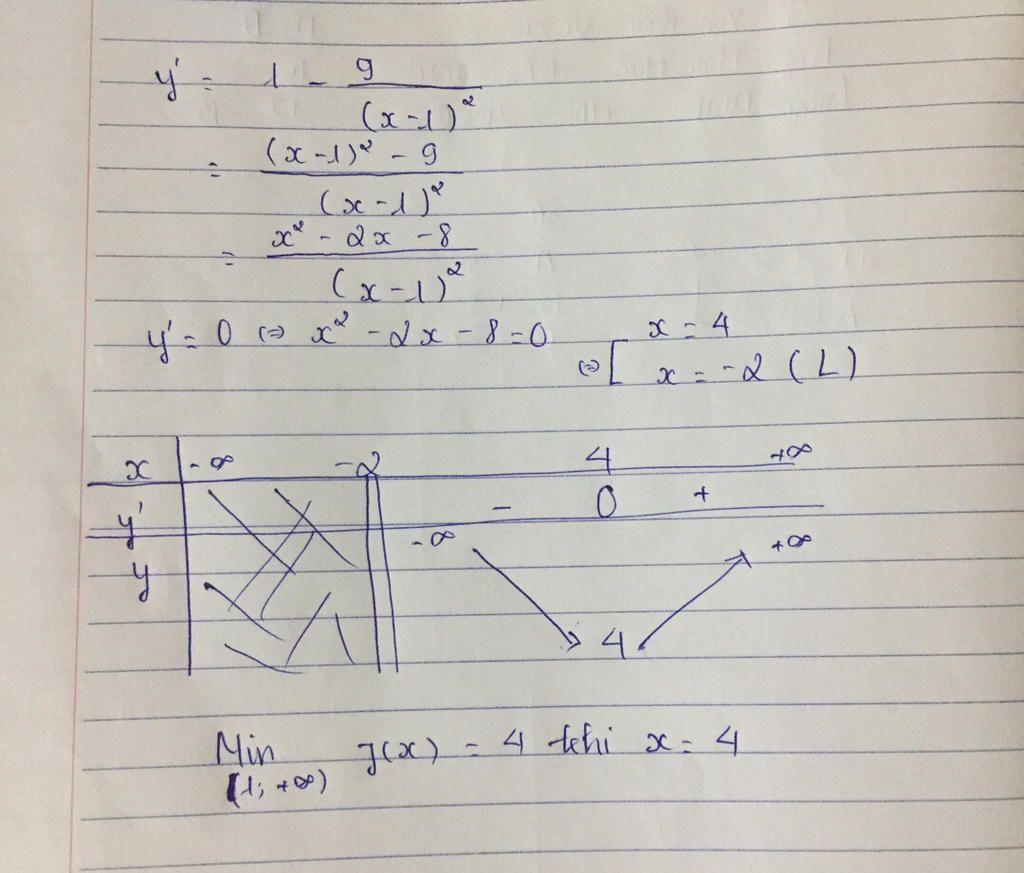 y' = 1 - 9/(x-1)²
= ((x-1)² - 9)/(x-1)²
= (x² - 2x - 8)/(x-1)²
y' = 0 ⇔ x² - 2x - 8 = 0 ⇔ [ x = 4
x = -2 (L)
x -∞ -2 4 +∞
y' - 0 +
y -∞ 4 +∞
Min f(x) = 4 khi x = 4
(1; +∞)